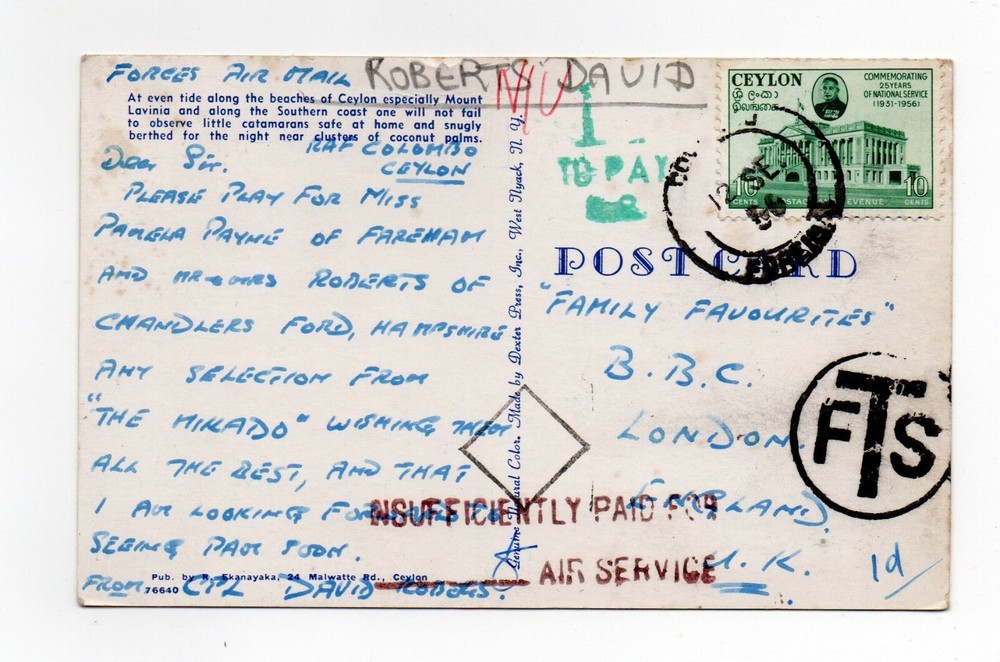 FORCES AIR MAIL
ROBERTS DAVID
N/U
At even tide along the beaches of Ceylon especially Mount
Lavinia and along the Southern coast one will not fail
to observe little catamarans safe at home and snugly
berthed for the night near clusters of coconut palms.
RAF COLOMBO
CEYLON
Dear Sir.
PLEASE PLAY FOR MISS
PAMELA PAYNE OF FAREHAM
AND MR & MRS ROBERTS OF
CHANDLERS FORD, HAMPSHIRE
ANY SELECTION FROM
"THE MIKADO" WISHING THEM
ALL THE BEST, AND THAT
I AM LOOKING FORWARD TO
SEEING PAM SOON.
FROM CPL DAVID ROBERTS.
Pub. by R. Ekanayaka, 24 Malwatte Rd., Ceylon
76640
Genuine Natural Color. Made by Dexter Press, Inc., West Nyack, N. Y.
1
TO PAY
CEYLON
ශ්‍රී ලංකා
இலங்கை
COMMEMORATING
25 YEARS
OF NATIONAL SERVICE
(1931-1956)
10 CENTS
POSTAGE REVENUE
10 CENTS
12 SE
56
FOREIGN
POST CARD
"FAMILY FAVOURITES"
B.B.C.
LONDON.
ENGLAND.
U.K.
FTS
INSUFFICIENTLY PAID FOR
AIR SERVICE
1d/